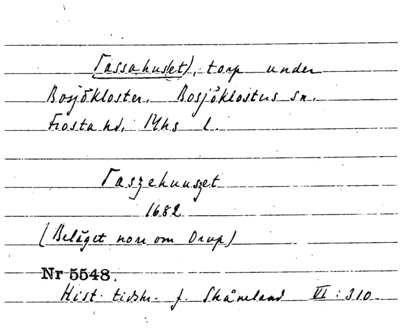 Tassahuset), torp under
Bosjökloster. Bosjöklosters sn.
Frosta hd, Mhs l.
Taszehuuszet
1682
(Beläget norr om Orup)
Nr 5548.
Hist. tidskr. f. Skåneland VI : 310.